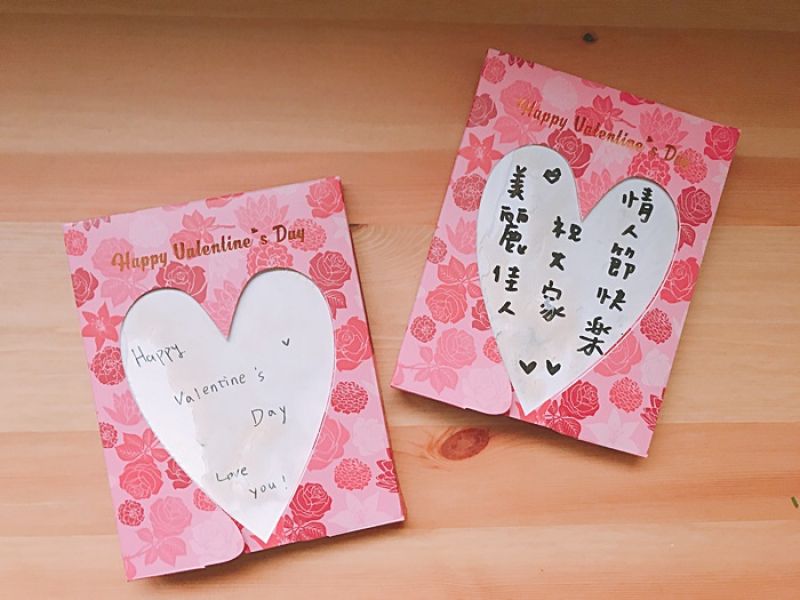 Happy Valentine's Day
Happy
Valentine's
Day
Love
you!
Happy Valentine's Day
美麗佳人
祝大家
情人節快樂